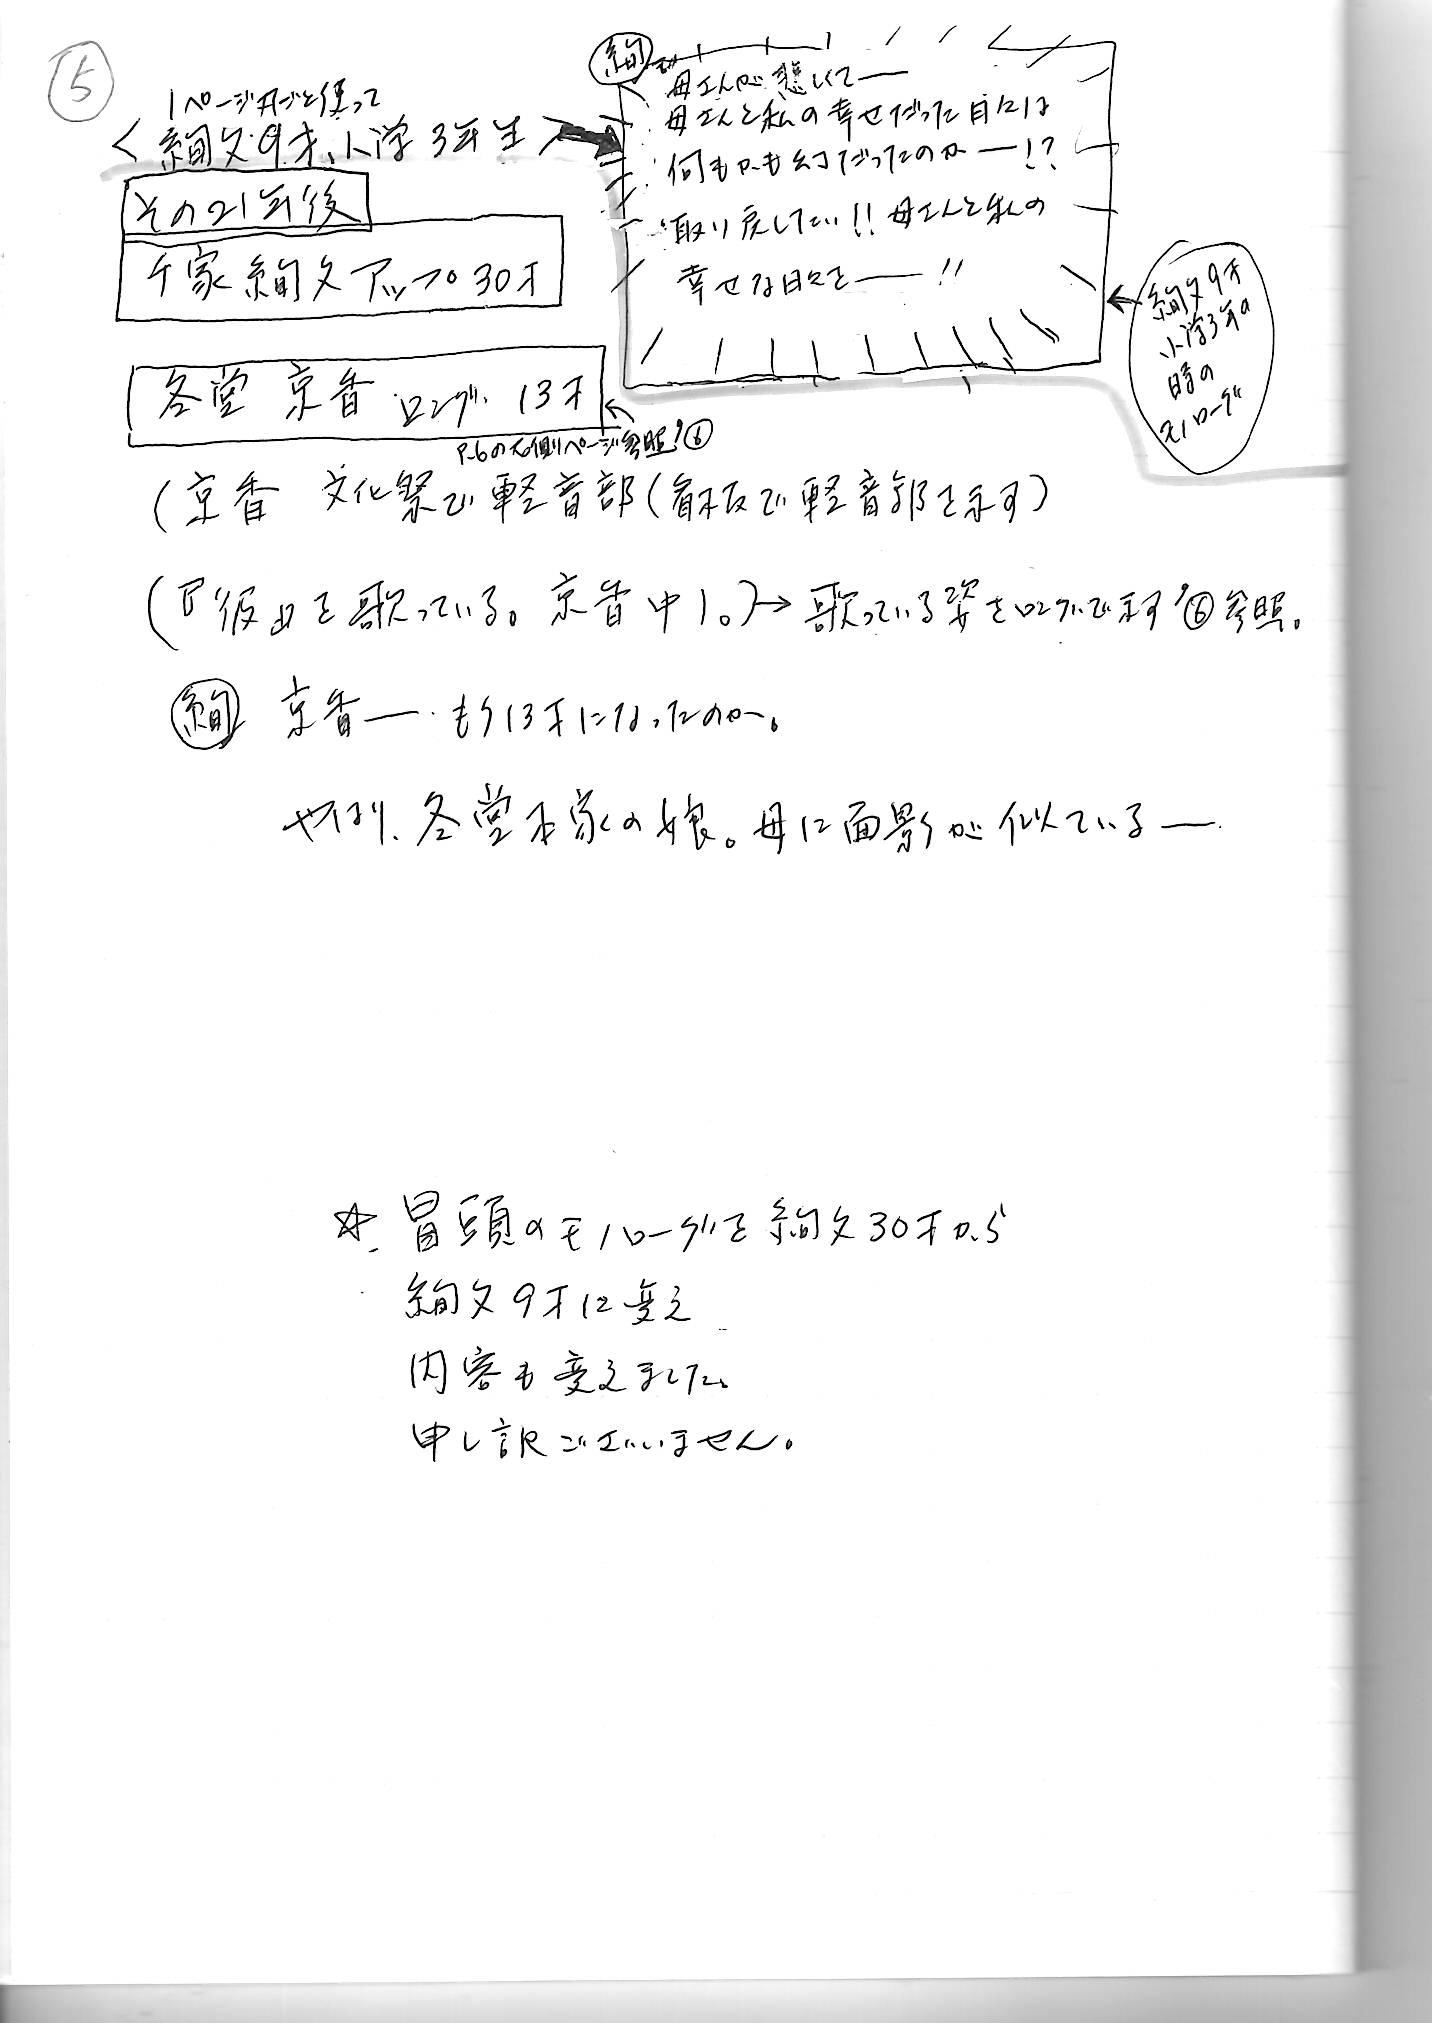 ⑤
1ページ丸ごと使って
＜絢文9才、小学3年生＞
絢
母さんが悲しくて――
母さんと私の幸せだった日々は
何もかも幻だったのか――!?
取り戻したい!!母さんと私の
幸せな日々を――!!
絢文9才
小学3年の
時の
モノローグ
その21年後
千家絢文アップ30才
各堂 京香 ロング 13才
P.6の右側ページ参照⑥
(京香 文化祭で軽音部(看板で軽音部を示す)
(『彼』を歌っている。京香中1。)→歌っている姿をロングで示す⑥参照。
絢 京香――もう13才になったのか。
やはり、各堂本家の娘。母に面影が似ている――
☆冒頭のモノローグを絢文30才から
絢文9才に変え
内容も変えました。
申し訳ございません。